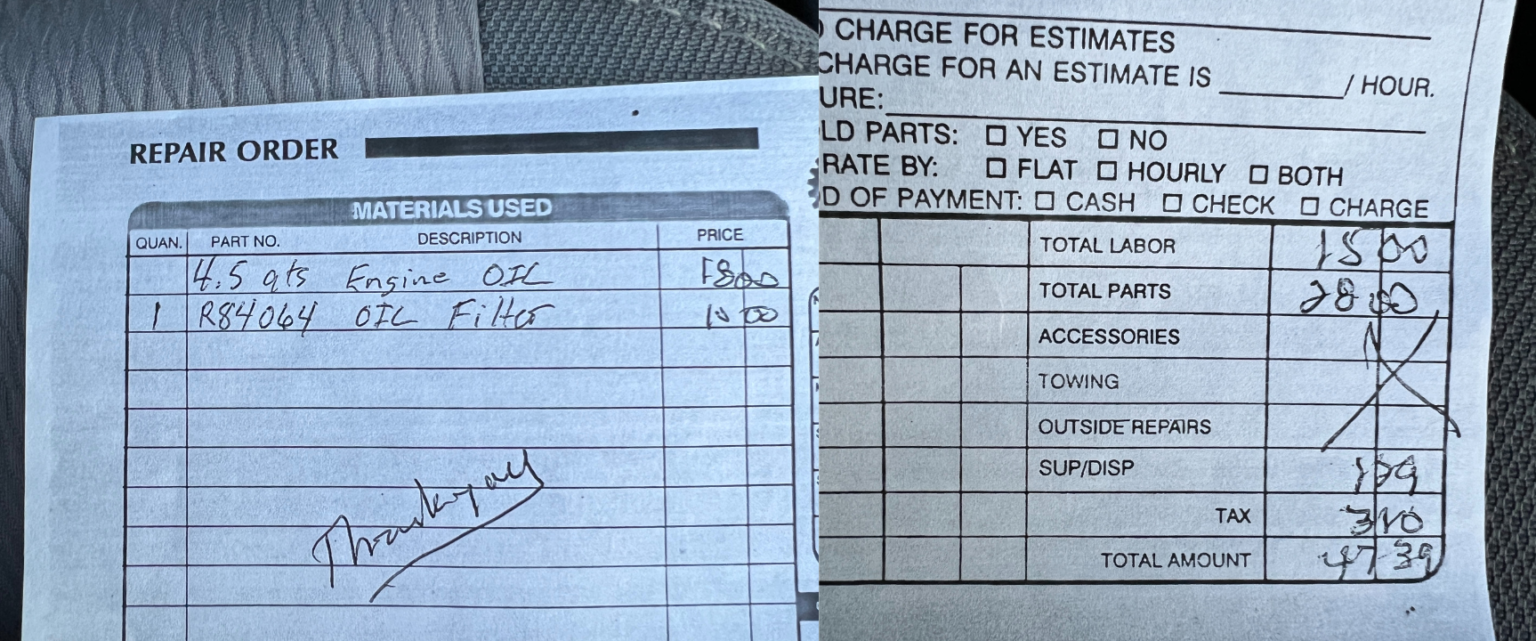 REPAIR ORDER
MATERIALS USED
QUAN. PART NO. DESCRIPTION PRICE
4.5 qts Engine OIL 18 00
1 R84064 OIL Filter 10 00
Thank you
CHARGE FOR ESTIMATES
CHARGE FOR AN ESTIMATE IS ______ / HOUR.
URE:
LD PARTS: ☐ YES ☐ NO
RATE BY: ☐ FLAT ☐ HOURLY ☐ BOTH
D OF PAYMENT: ☐ CASH ☐ CHECK ☐ CHARGE
TOTAL LABOR 15 00
TOTAL PARTS 28.00
ACCESSORIES
TOWING
OUTSIDE REPAIRS
SUP/DISP 1 29
TAX 3 10
TOTAL AMOUNT 47 39